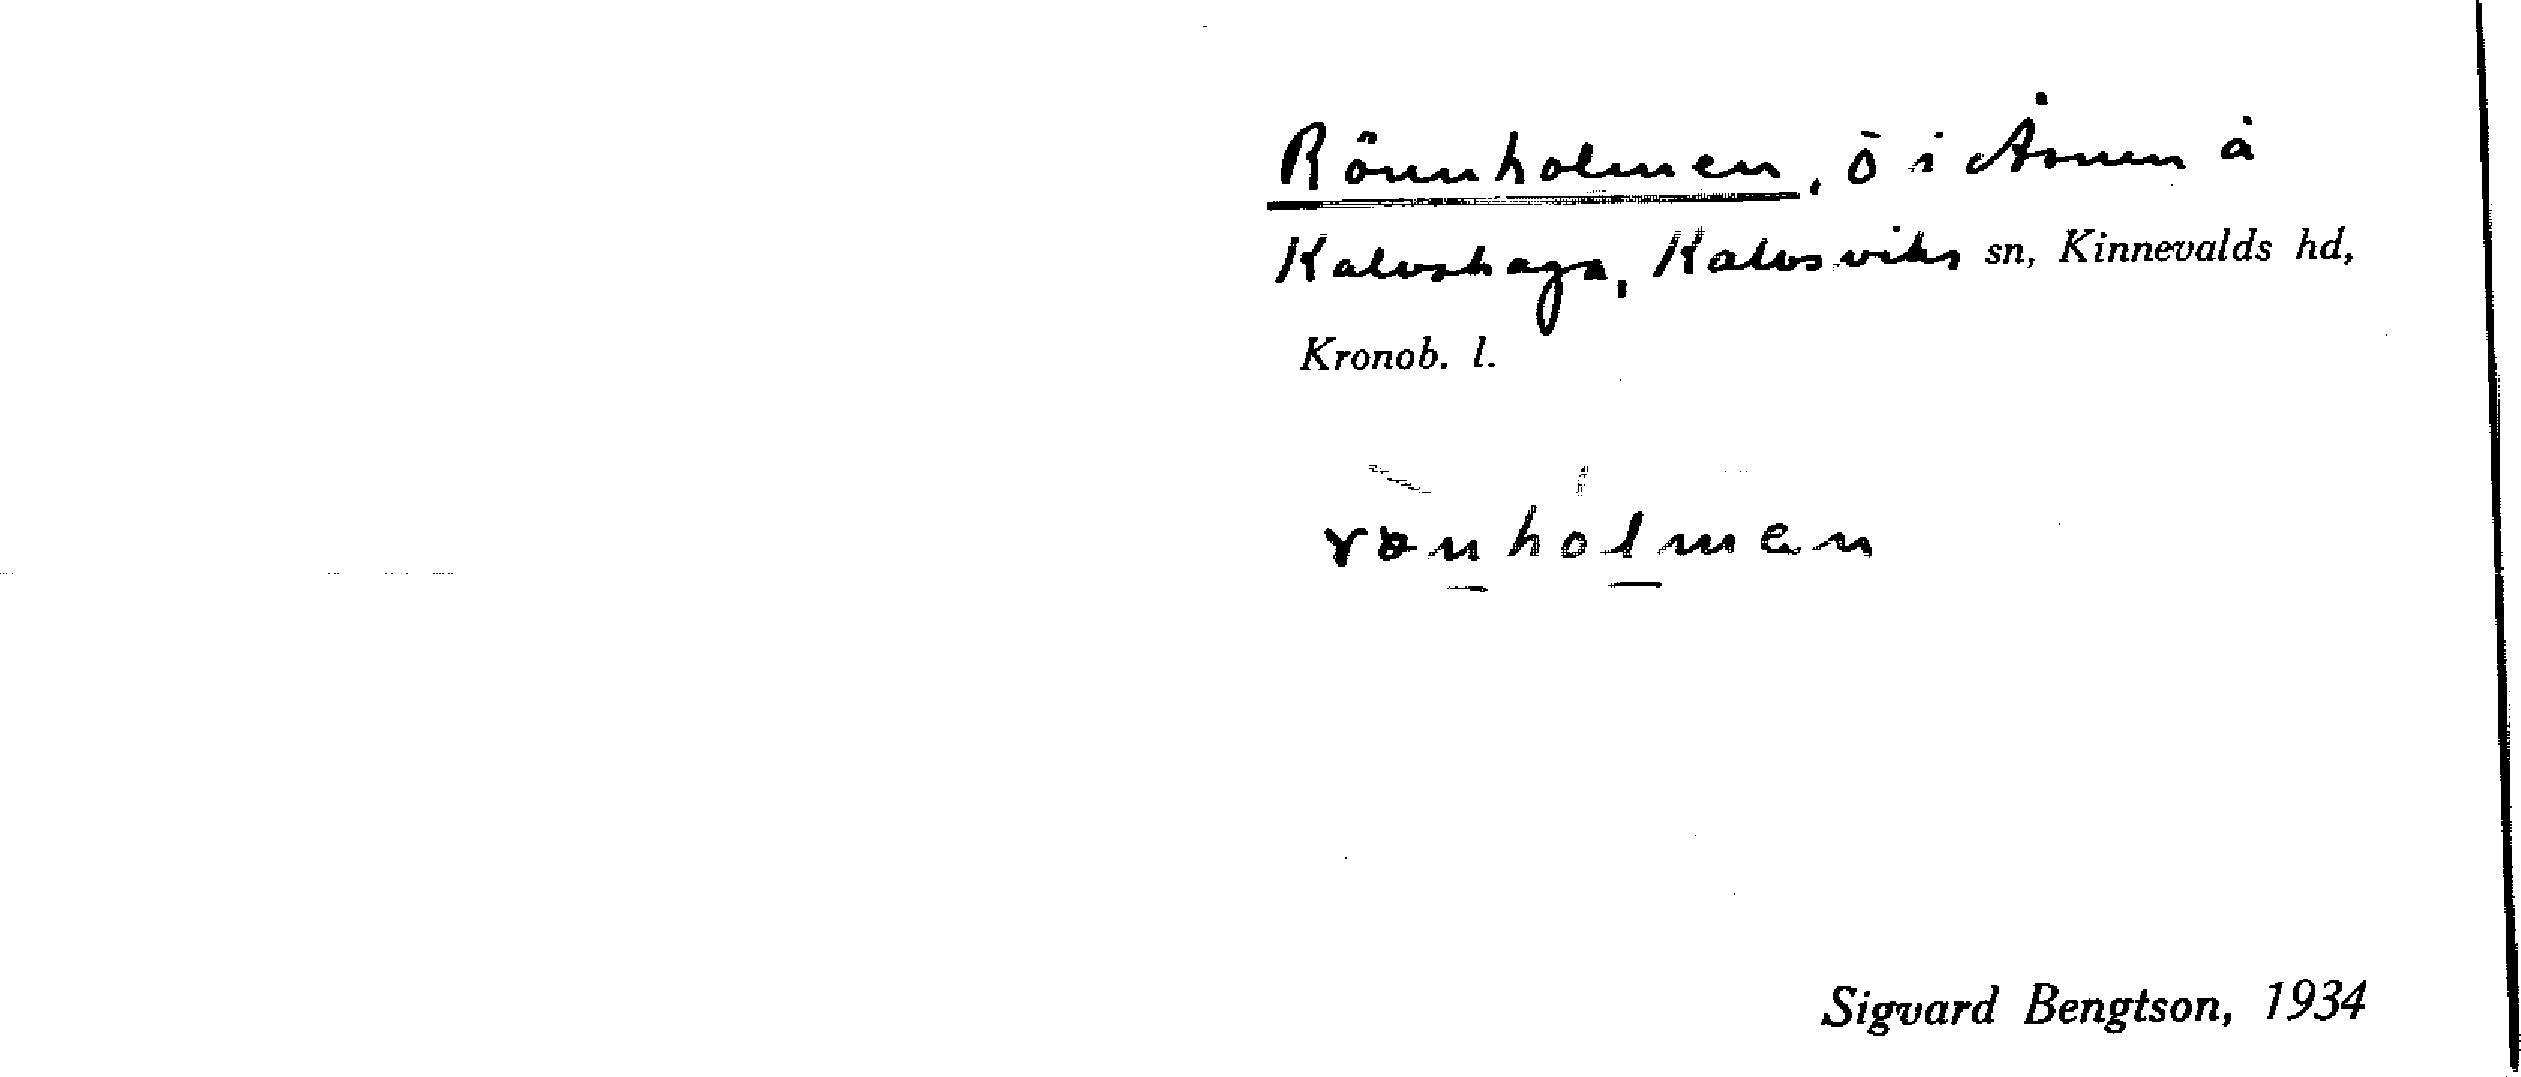 Rönnholmen, ö i Åsnen å
Kalvshaga, Kalvsviks sn, Kinnevalds hd,
Kronob. l.
rönholmen
Sigvard Bengtson, 1934